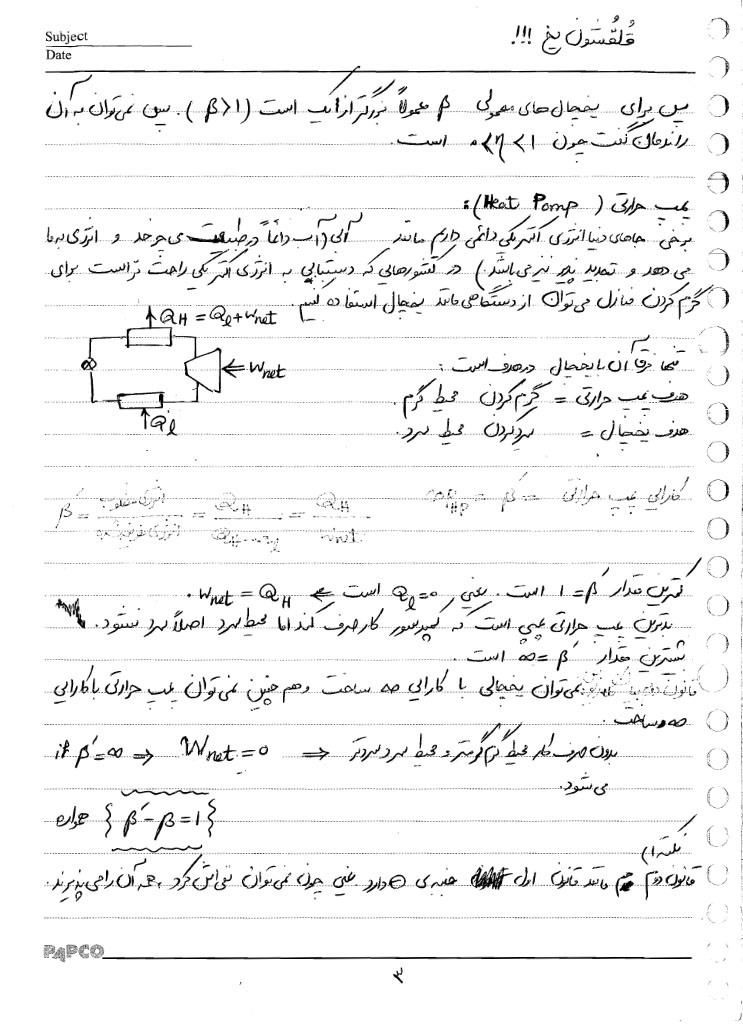 Subject
Date
قُلقُسّون یخ !!!
پس برای یخچال های معمولی β معمولاً بزرگتر از یک است (β>1). پس نمی توان به آن
راندمان گفت چون 0<η<1 است.
پمپ حرارتی (Heat Pomp):
برخی جاهای دنیا انرژی الکتریکی دائمی داریم مانند آبی (آب دائماً در طبیعت می چرخد و انرژی به ما
می دهد و تجدید پذیر نیز می باشد) در کشورهایی که دستیابی به انرژی الکتریکی راحت تر است برای
گرم کردن منازل می توان از دستگاهی مانند یخچال استفاده کنیم.
QH = Ql + Wnet
Wnet
Ql
تنها فرق آن با یخچال در هدف است:
هدف پمپ حرارتی = گرم کردن محیط گرم.
هدف یخچال = سرد کردن محیط سرد.
کارایی پمپ حرارتی = β′ = COPHP
β′ = انرژی مطلوب / انرژی = QH / QH-Ql = QH / Wnet
کمترین مقدار β′=1 است. یعنی Ql=0 است ⇐ Wnet = QH.
بدترین پمپ حرارتی پمپی است که کمپرسور کار صرف کند اما محیط سرد اصلاً سرد نشود.
بیشترین مقدار β′=∞ است.
قانون دوم نمی توان یخچالی با کارایی ∞ ساخت و هم چنین نمی توان پمپ حرارتی با کارایی
∞ ساخت.
if β′=∞ ⇒ Wnet=0 ⇒ بدون صرف کار محیط گرم گرمتر و محیط سرد سردتر
می شود.
همواره {β′-β=1}
نکته 1)
قانون دوم هم مانند قانون اول جنبه ی ⊖ دارد. یعنی چون نمی توان نفی اش کرد، همه آن را می پذیرند.
PAPCO
۳